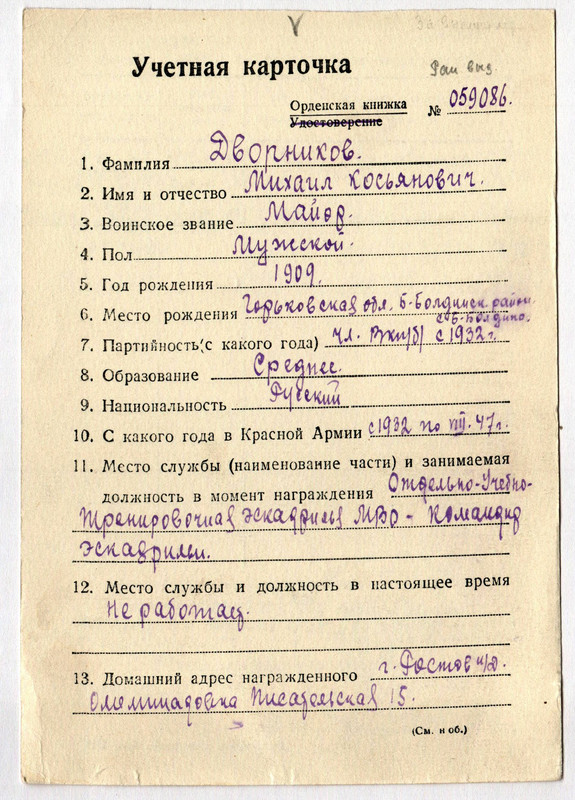 Учетная карточка
Рай выд
Орденская книжка
Удостоверение
№ 059086.
1. Фамилия Дворников.
2. Имя и отчество Михаил Косьянович.
3. Воинское звание Майор.
4. Пол Мужской.
5. Год рождения 1909.
6. Место рождения Горьковская обл. Б-Болдинск. район.
с Б-Болдино.
7. Партийность (с какого года) чл. ВКП(б) с 1932 г.
8. Образование Среднее.
9. Национальность Русский
10. С какого года в Красной Армии с 1932 по VIII. 47 г.
11. Место службы (наименование части) и занимаемая
должность в момент награждения Отдельно-Учебно-
Тренировочная эскадрилья МВО - Командир
эскадрильи.
12. Место службы и должность в настоящее время
Не работает.
13. Домашний адрес награжденного г. Ростов н/Д.
Олимпиадовка Писательская 15.
(См. н об.)